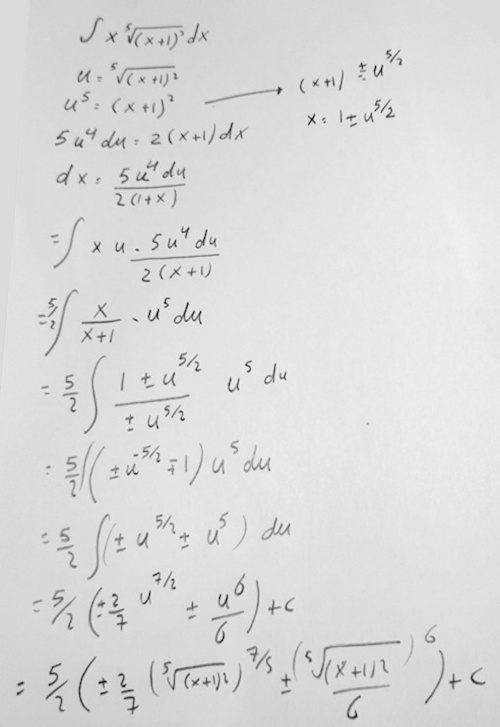 ∫ x ⁵√(x+1)² dx
u = ⁵√(x+1)²
u⁵ = (x+1)² → (x+1) ± u^{5/2}
x = 1 ± u^{5/2}
5u⁴ du = 2(x+1) dx
dx = 5u⁴ du / 2(1+x)
= ∫ x u · 5u⁴ du / 2(x+1)
= 5/2 ∫ x/(x+1) · u⁵ du
= 5/2 ∫ (1 ± u^{5/2}) / (± u^{5/2}) u⁵ du
= 5/2 ∫ (± u^{-5/2} ∓ 1) u⁵ du
= 5/2 ∫ (± u^{5/2} ± u⁵) du
= 5/2 (± 2/7 u^{7/2} ± u⁶/6) + c
= 5/2 (± 2/7 (⁵√(x+1)²)^{7/5} ± (⁵√(x+1)²)⁶/6) + c